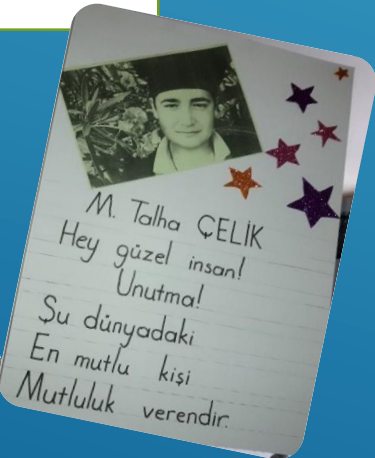 M. Talha ÇELİK
Hey güzel insan!
Unutma!
Şu dünyadaki
En mutlu kişi
Mutluluk verendir.